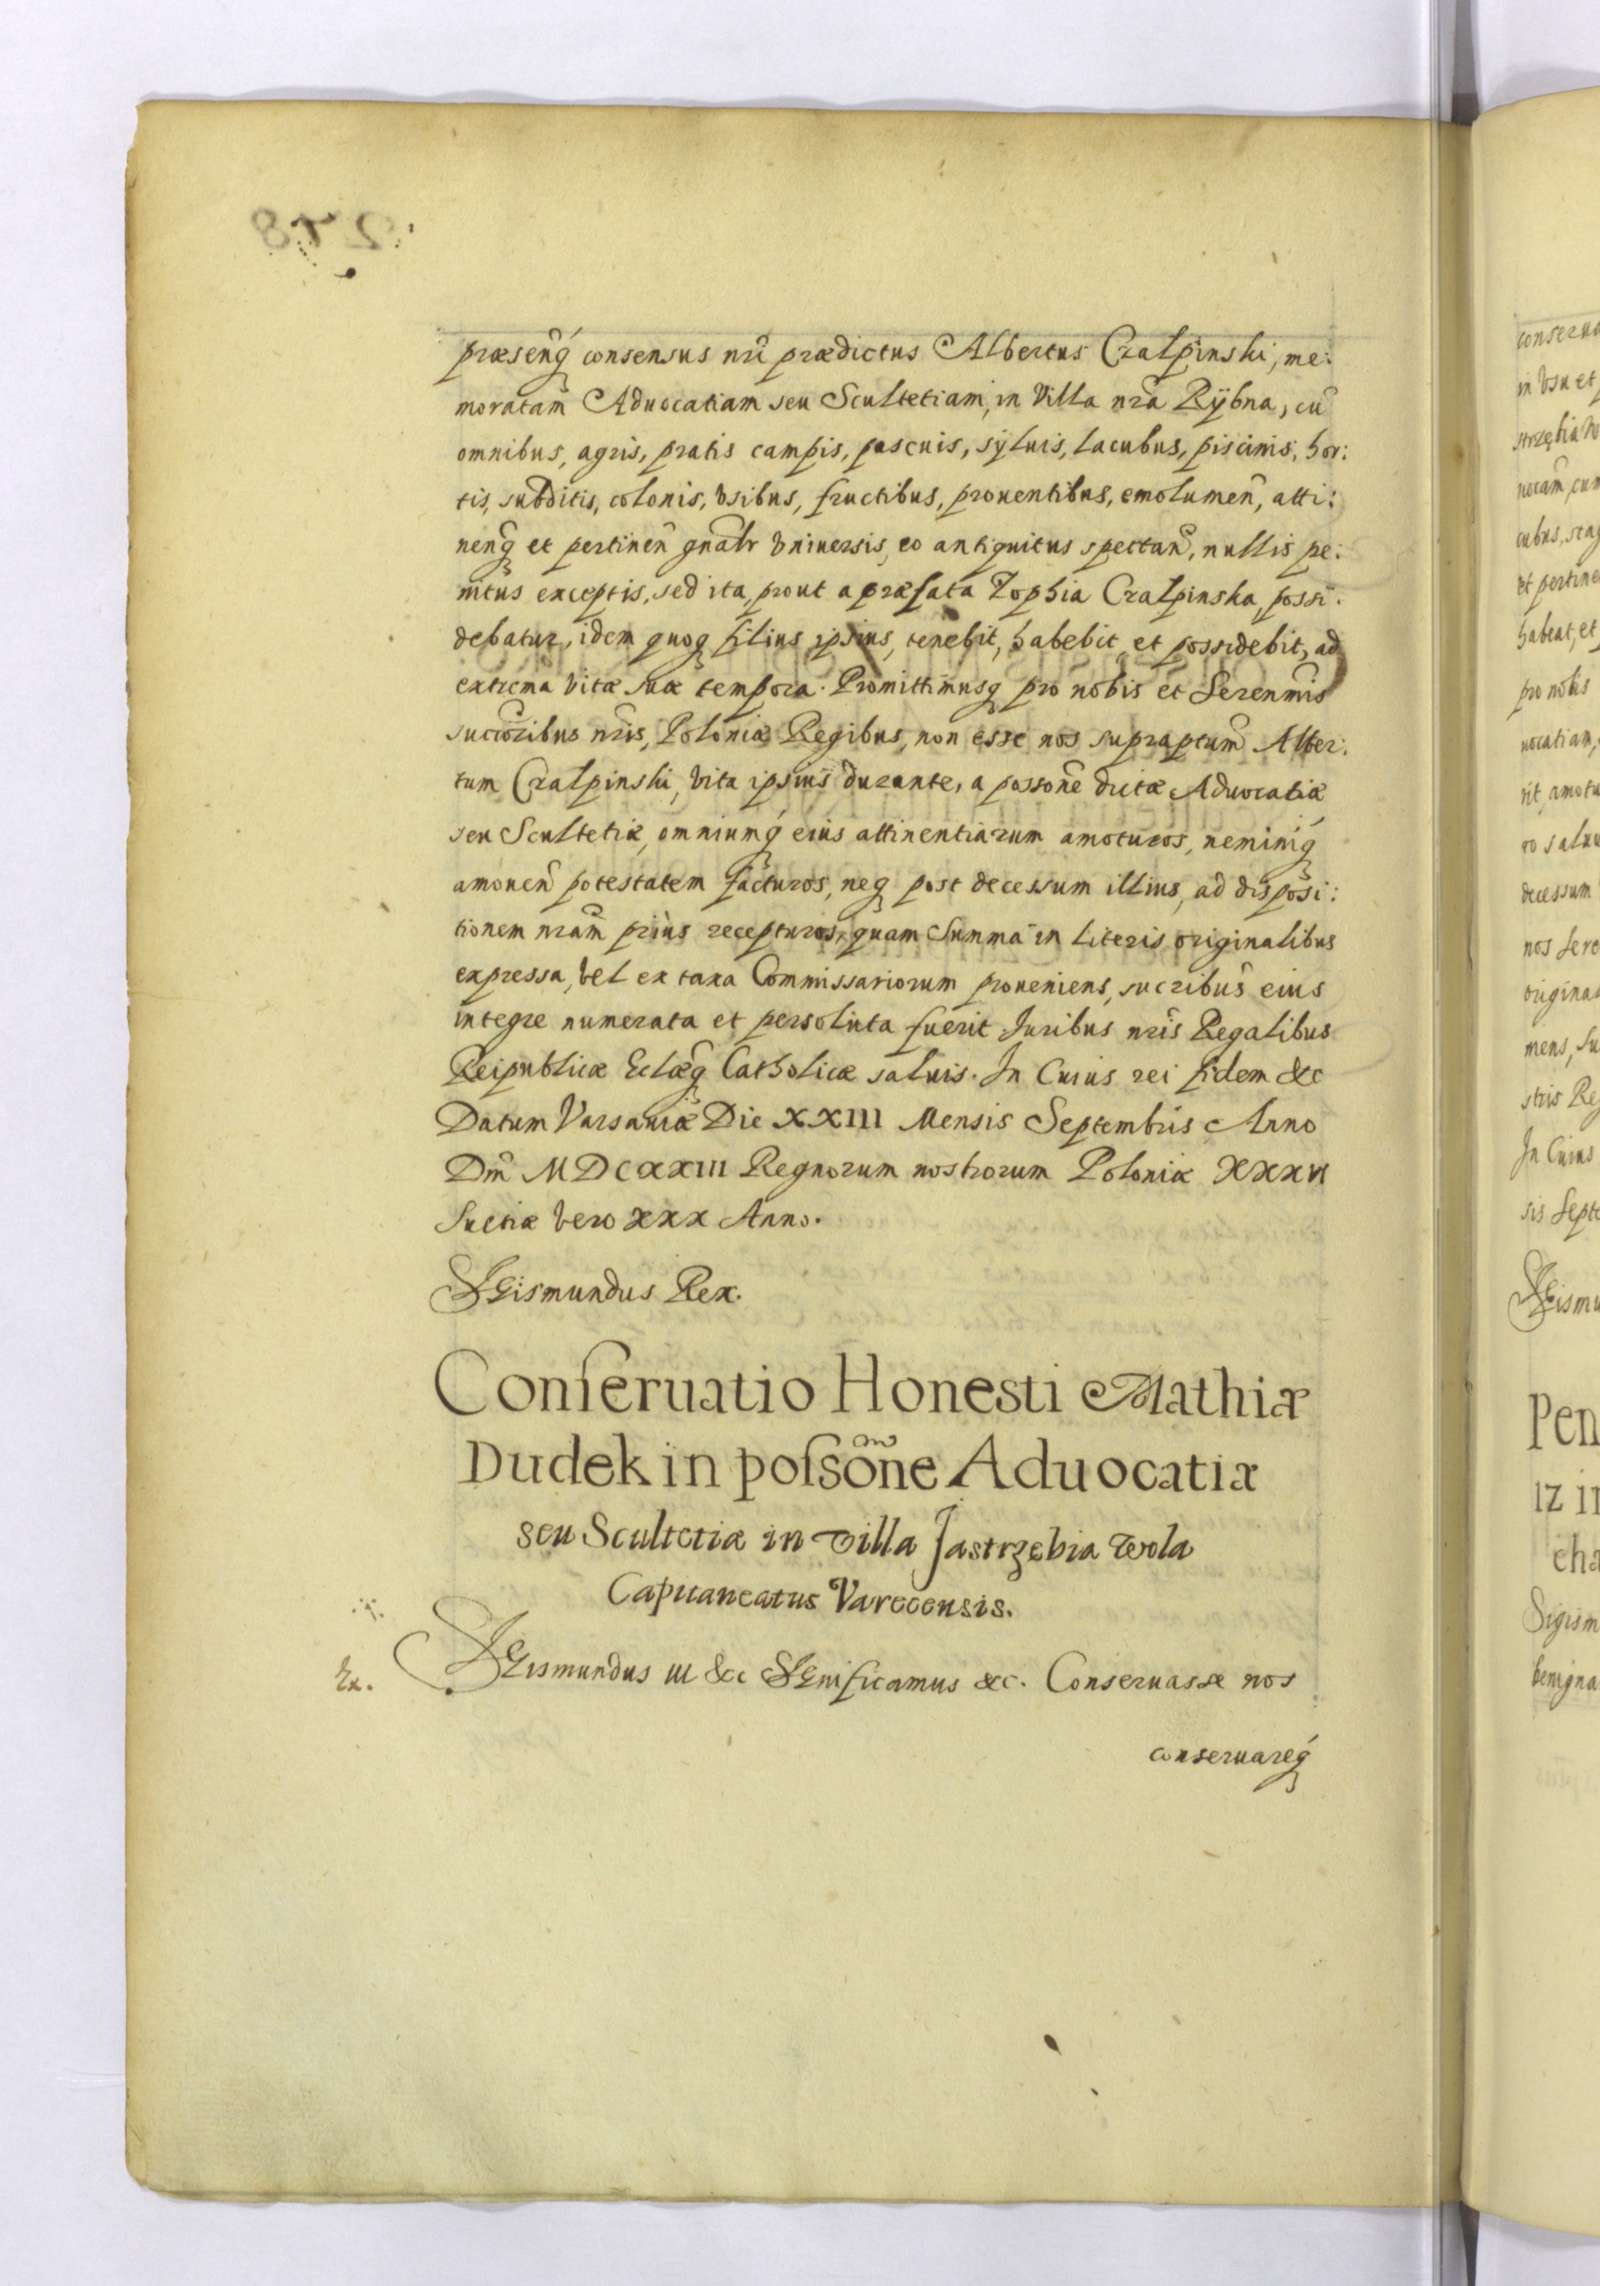 præsenq́ consensus nri prædictus Albertus Czalpinski, me:
moratam Aduocatiam seu Scultetiam, in Villa nra Rÿbna, cũ
omnibus, agris, pratis campis, pascuis, syluis, lacubus, piscinis, hor:
tis, subditis, colonis, vsibus, fructibus, prouentibus, emolumen, atti:
nenq et pertinen gnalr vniuersis, eo antiquitus spectan, nullis pe:
nitus exceptis, sed ita, prout a præfata Zophia Czalpinska, possi:
debatur, idem quoq filius ipsius, tenebit, habebit, et possidebit, ad
extrema vitæ suæ tempora. Promittimusq pro nobis et Serenmis
succroribus nris, Poloniæ Regibus, non esse nos supraptum Alber:
tum Czalpinski, vita ipsius durante, a possone dictæ Aduocatiæ
seu Scultetiæ, omniumq́ eius attinentiarum amoturos, neminiq́
amouen potestatem facturos, neq post decessum illius, ad disposi:
tionem nram priùs recepturos, quam Summa in literis originalibus
expressa, vel ex taxa Commissariorum proueniens, sucribus eius
integre numerata et persoluta fuerit Juribus nris Regalibus
Reipublicæ Eclæq Catholicæ saluis. In Cuius rei fidem &c
Datum Varsauiæ Die XXIII Mensis Septembris Anno
Dni MDCXXIII Regnorum nostrorum Poloniæ XXXVI
Suetiæ vero XXX Anno.
Sgismundus Rex.
Conseruatio Honesti Mathiæ
Dudek in possone Aduocatiæ
seu Scultetiæ in Villa Jastrzębia Wola
Capitaneatus Varecensis.
Ex. Sgismundus III &c Sgnificamus &c. Conseruasse nos
conseruareq́
278